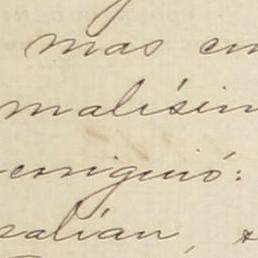 mas en
malísim
consiguió:
salían,